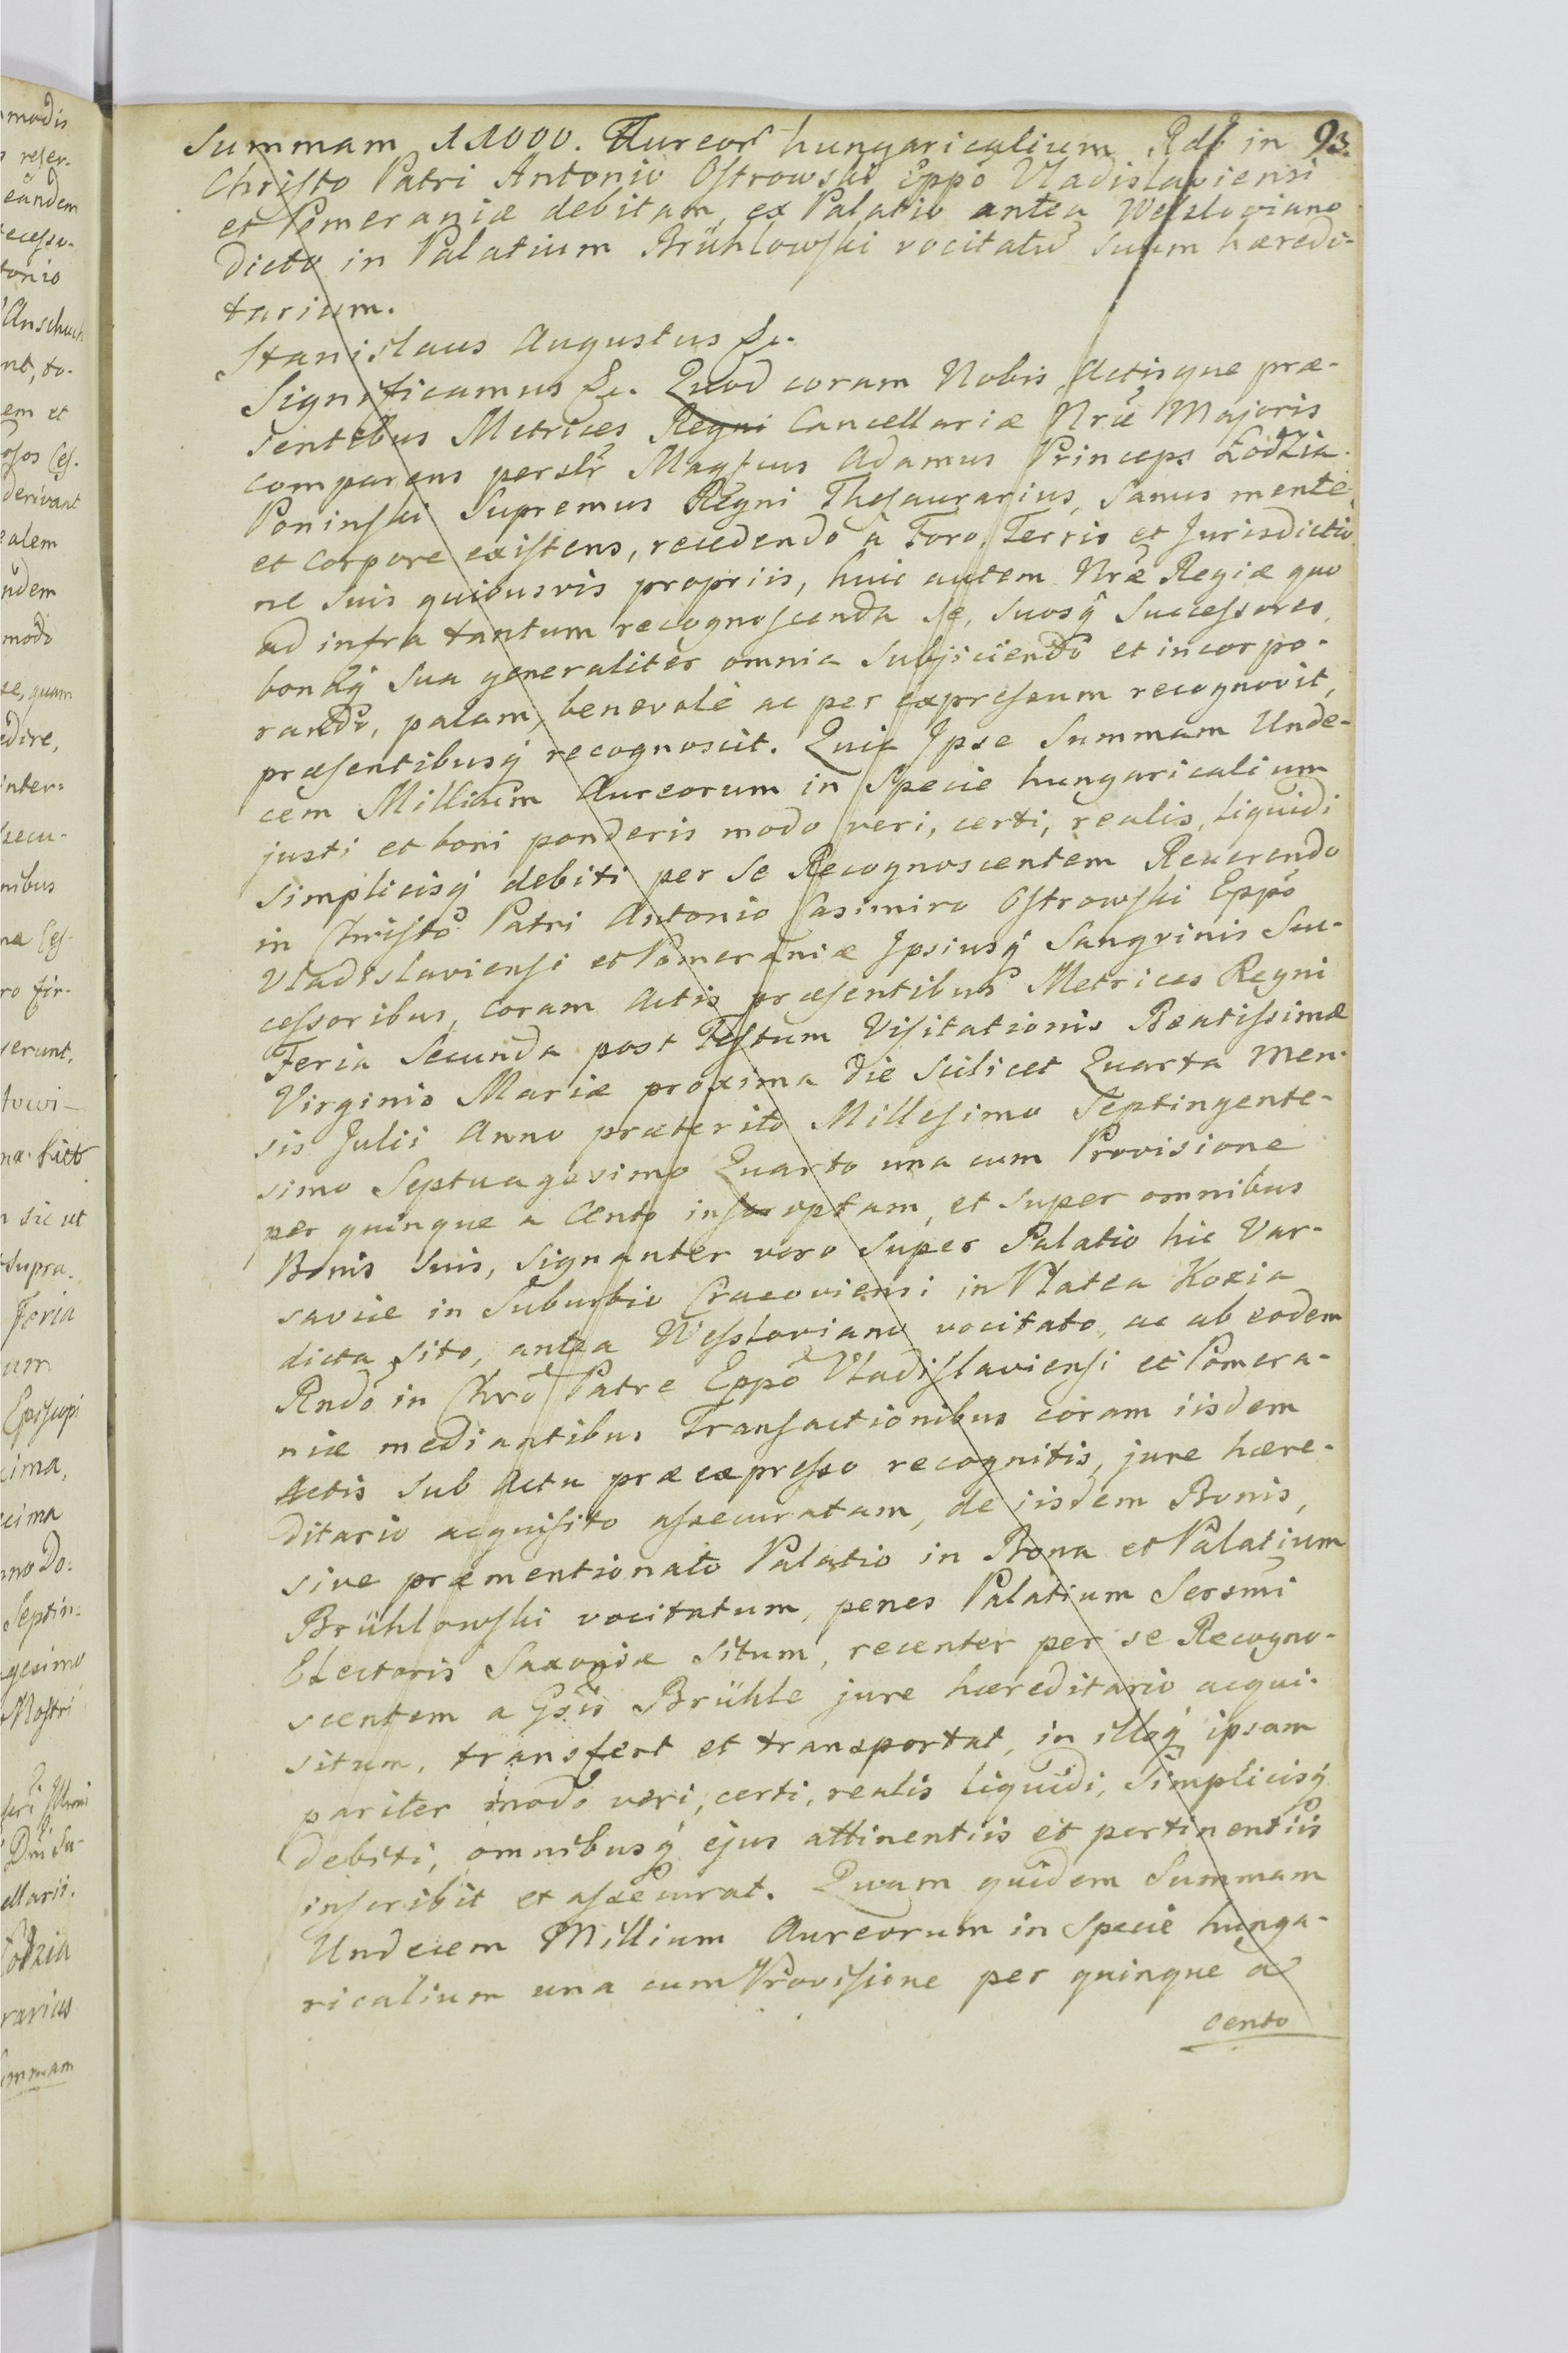 Summam 11000. Aureor hungaricalium Rdo in 93.
Christo Patri Antonio Ostrowski Eppo Vladislaviensi
et Pomeraniæ debitam, ex Palatio antea Wesloviano
dicto in Palatium Brühlowski vocitatū suum hæredi-
tarium.
Stanislaus Augustus &c.
Significamus &c. Quod coram Nobis Actisque præ-
sentibus Metrices Regni Cancellariæ Nræ Majoris
comparens persolr Magfcus Adamus Princeps Łodzia
Poninski Supremus Regni Thesaurarius, sanus mente
et corpore existens, recedendo à Foro, Terris et Jurisdictio
ne suis quibusvis propriis, huic autem Nræ Regiæ quo
ad infra tantum recognoscenda se, suosq successores,
bonaq sua generaliter omnia subjiciendo et incorpo-
rando, palam, benevole ac per expressum recognovit,
præsentibusq recognoscit. Quia Ipse Summam Unde-
cem Millium Aureorum in specie hungaricalium
justi et boni ponderis modo veri, certi, realis, liquidi
simplicisq debiti per se Recognoscentem Reverendo
in Christo Patri Antonio Casimiro Ostrowski Eppo
Vladislaviensi et Pomeraniæ Ipsiusq Sangvinis Suc-
cessoribus, coram Actis præsentibus Metrices Regni
Feria Secunda post Festum Visitationis Beatissimæ
Virginis Mariæ proxima die scilicet Quarta Men-
sis Julii Anno præterito Millesimo Septingente-
simo Septuagesimo Quarto una cum Provisione
per quinque a Cento inscriptam, et super omnibus
Bonis suis, signanter vero super Palatio hic Var-
saviæ in Suburbio Cracoviensi in Platea Kozia
dicta sito, antea Wessloviano vocitato, ac ab eodem
Rndo in Chro Patre Eppo Vladislaviensi et Pomera-
niæ mediantibus Transactionibus coram iisdem
Actis sub actu præexpresso recognitis, jure hære-
ditario acquisito assecuratam, de iisdem Bonis,
sive præmentionato Palatio in Bona et Palatium
Brühlowski vocitatum, penes Palatium Sersmi
Electoris Saxoniæ situm, recenter per se Recogno-
scentem a Gsis Brühle jure hæreditario acqui-
situm, transfert et transportat, in illoq ipsam
pariter modo veri, certi, realis liquidi, simplicisq
debiti, omnibusq ejus attinentiis et pertinentiis
inscribit et assecurat. Quam quidem Summam
Undecem Millium Aureorum in specie hunga-
ricalium una cum Provisione per quinque a
cento